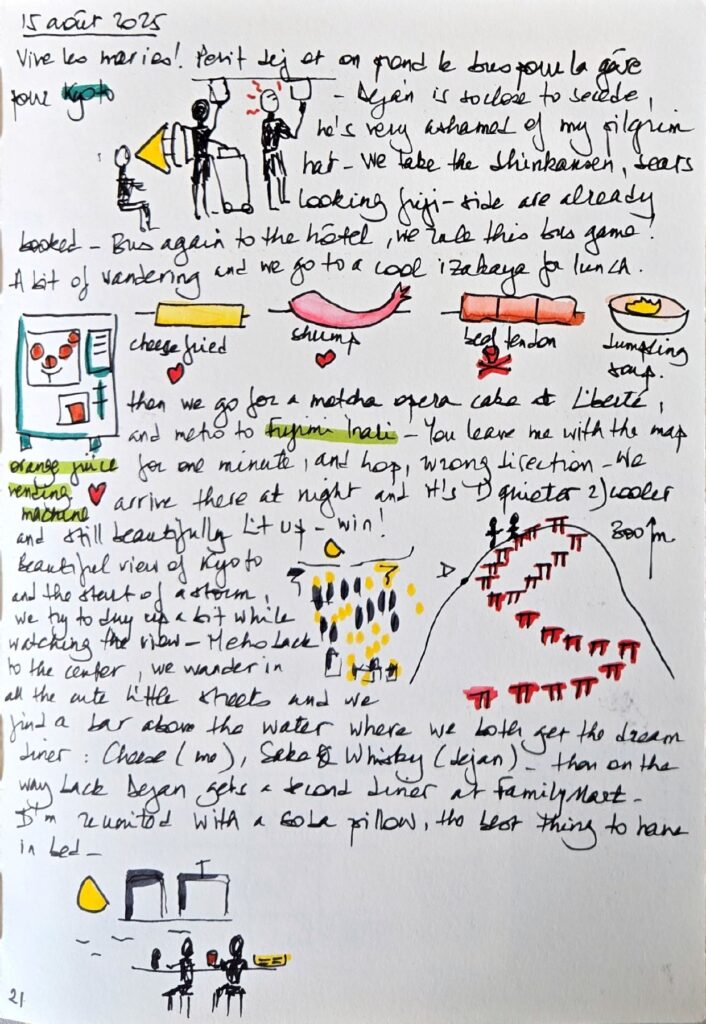 15 août 2025
Vive les maries! Petit dej et on prend le bus pour la gare
pour Kyoto
- Dejan is so close to secede,
he's very ashamed of my pilgrim
hat - We take the Shinkansen, seats
looking fuji-side are already
booked - Bus again to the hôtel, we rule this bus game!
A bit of wandering and we go to a cool izakaya for lunch.
cheese fried
shrimp
beef tendon
dumpling
soup.
then we go for a matcha opera cake at Liberté,
and metro to Fujimi Inari - You leave me with the map
orange juice
vending
machine
for one minute, and hop, wrong direction - We
arrive there at night and it's 1) quieter 2) cooler
and still beautifully lit up - win!
Beautiful view of Kyoto
and the start of a storm,
we try to dry up a bit while
watching the view - Metro back
to the center, we wander in
all the cute little streets and we
300 m
find a bar above the water where we both get the dream
diner: Cheese (me), Sake & Whisky (dejan) - then on the
way back Dejan gets a second diner at FamilyMart -
I'm reunited with a soba pillow, the best thing to have
in bed -
21